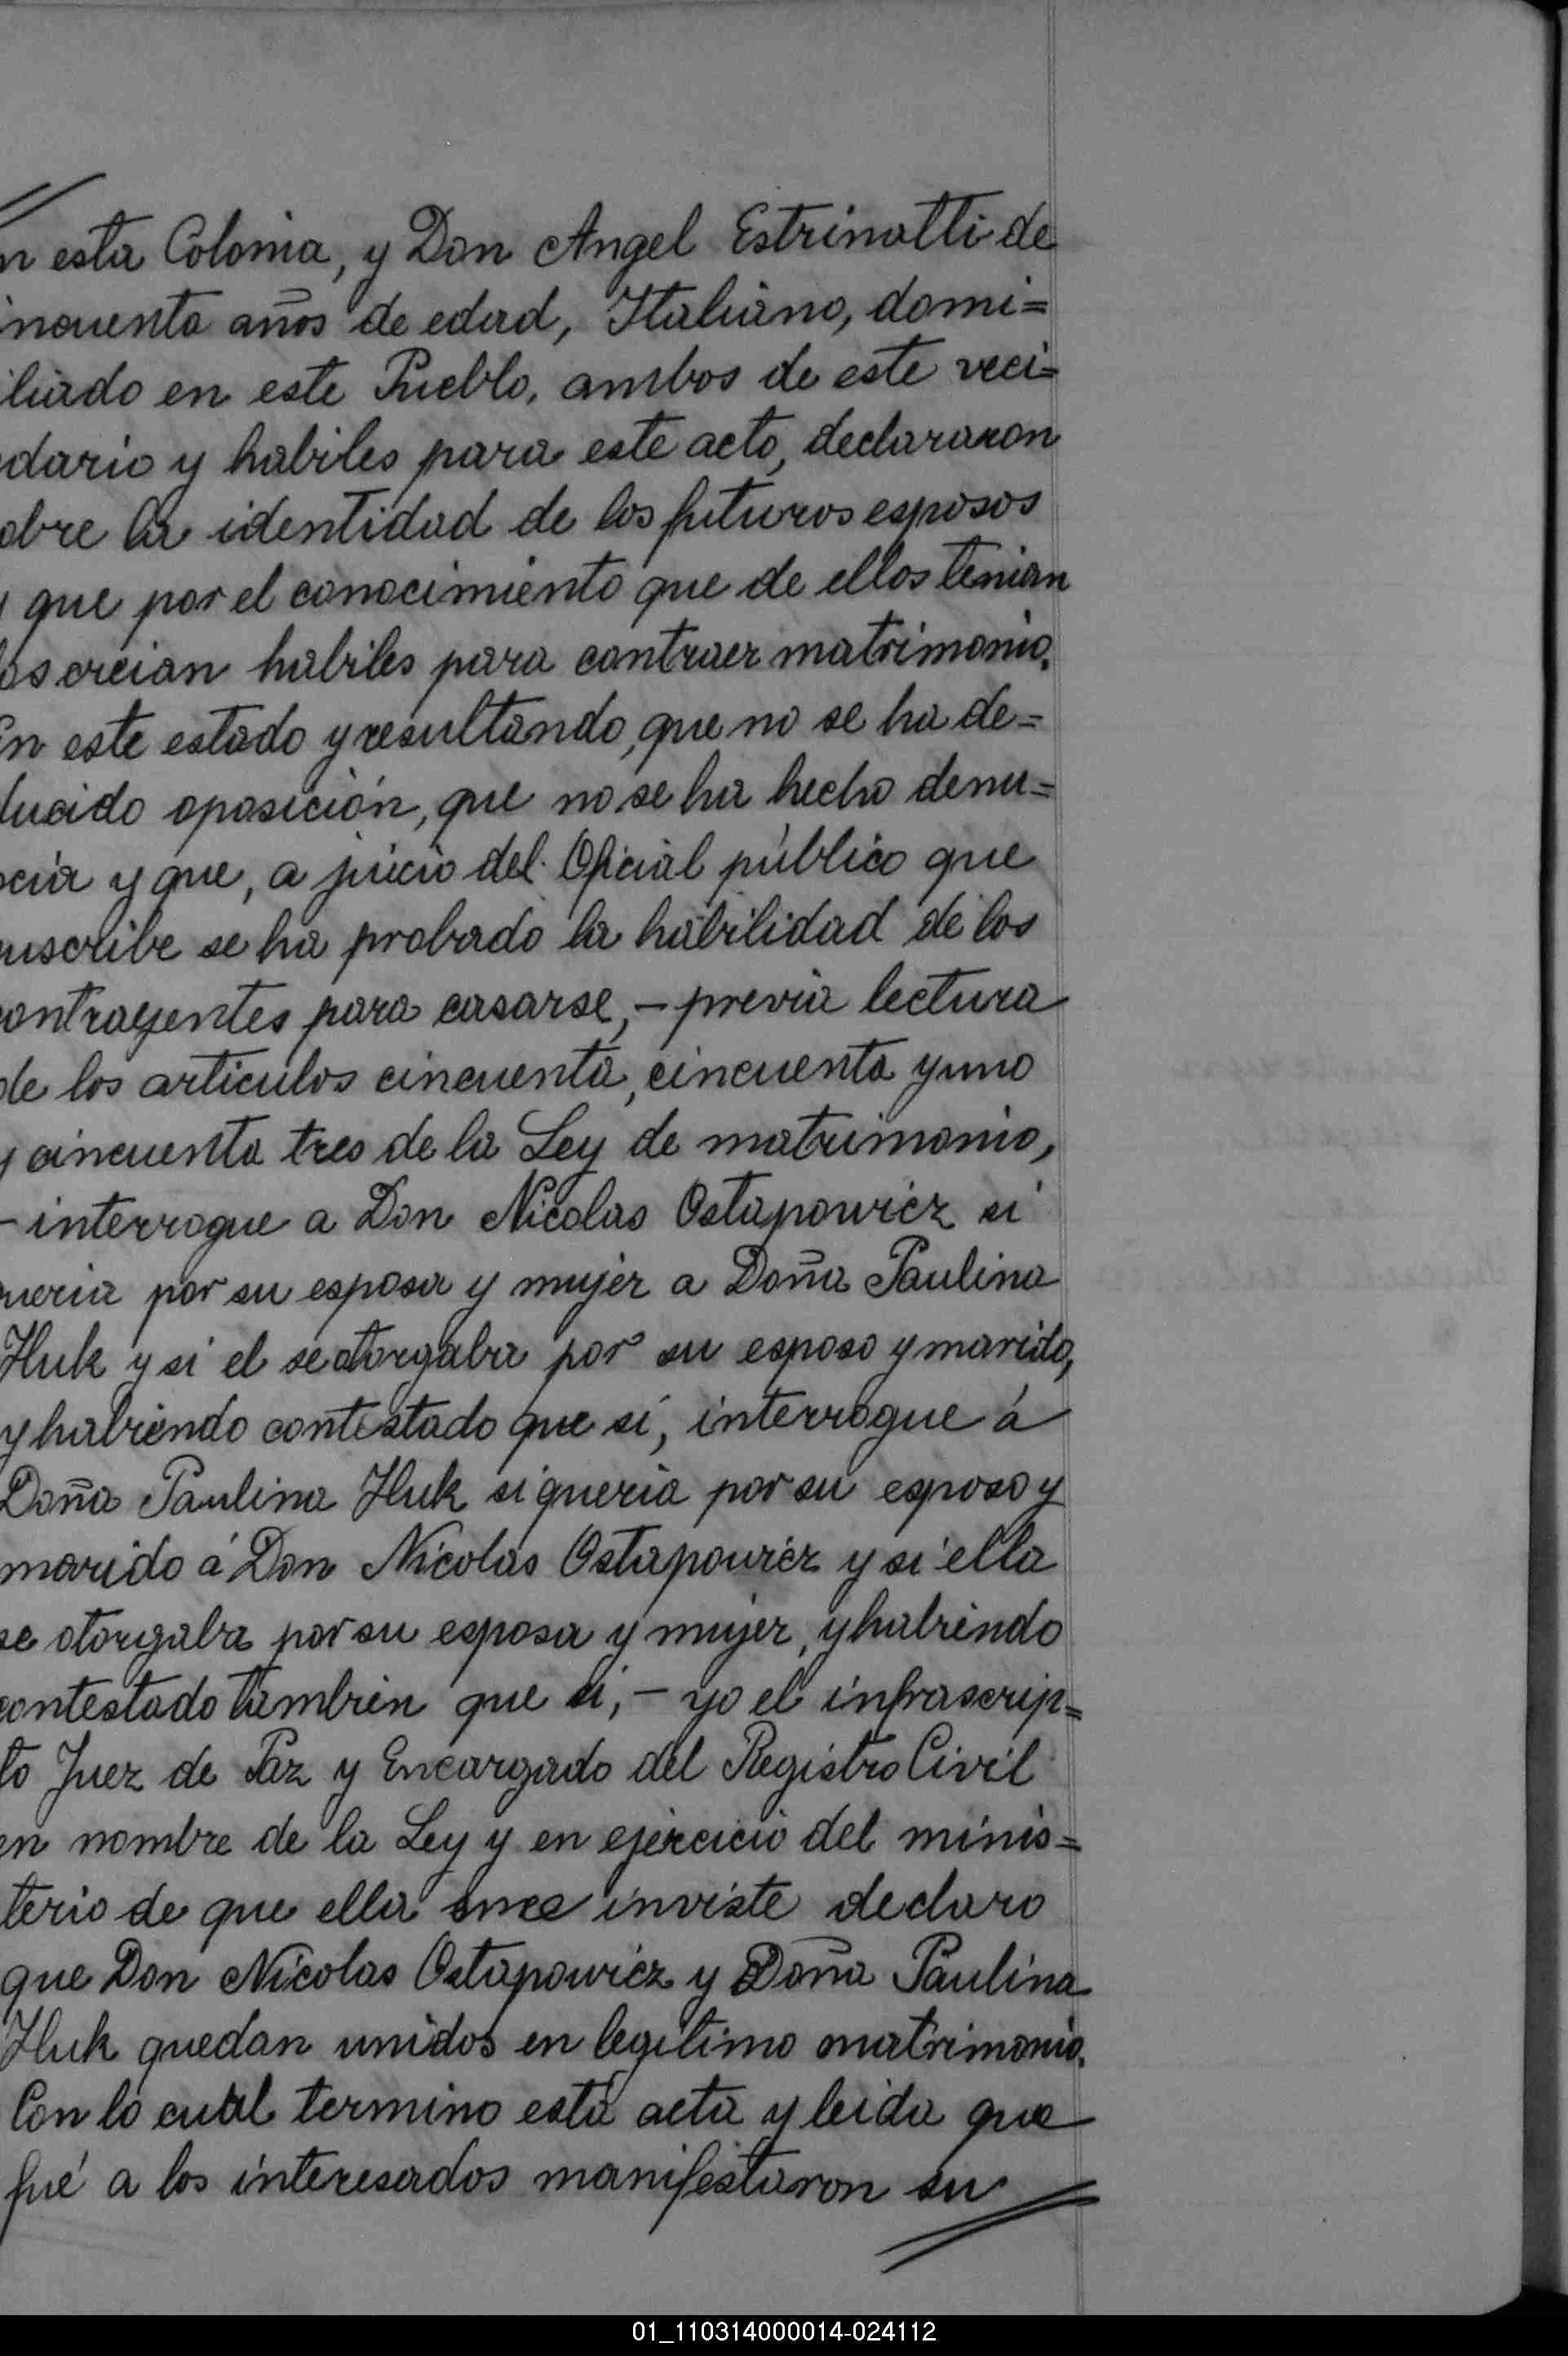 n esta Colonia, y Don Angel Estrinatti de
incuenta años de edad, Italiano, domi=
iliado en este Pueblo, ambos de este veci=
dario y habiles para este acto, declararon
obre la identidad de los futuros esposos
y que por el conocimiento que de ellos tenian
los creian habiles para contraer matrimonio.
En este estado y resultando, que no se ha de=
ducido oposición, que no se ha hecho denu=
cia y que, a juicio del Oficial público que
uscribe se ha probado la habilidad de los
contrayentes para casarse, - previa lectura
de los articulos cincuenta, cincuenta y uno
y cincuenta tres de la Ley de matrimonio,
- interrogue a Don Nicolas Ostapowicz si
queria por su esposa y mujer a Doña Paulina
Huk y si el se otorgaba por su esposo y marido,
y habiendo contestado que sí, interrogue á
Doña Paulina Huk si queria por su esposo y
marido á Don Nicolas Ostapowicz y si ella
se otorgaba por su esposa y mujer, y habiendo
contestado tambien que si, - yo el infrascrip=
to Juez de Paz y Encargado del Registro Civil
en nombre de la Ley y en ejercicio del minis=
terio de que ella me inviste declaro
que Don Nicolas Ostapowicz y Doña Paulina
Huk quedan unidos en legitimo matrimonio.
Con lo cual termino esta acta y leida que
fué a los interesados manifestaron su
01_110314000014-024112